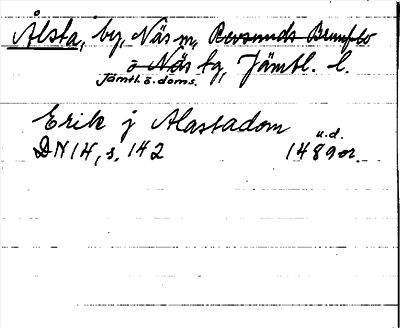 Ålsta, by, Näs sn, Revsunds Brunflo
o Näs tg, Jämtl. l.
Jämtl. ö. doms.
Erik j Alastadom
u.d.
DN 14, s. 142 1489 or.